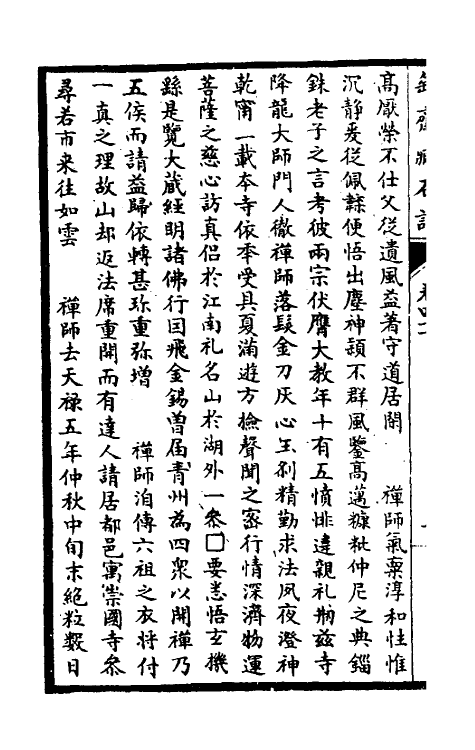 高厭榮不仕父從遺風益著守道居閤　　禪師氣稟淳和性惟
沉静爰從佩韘便悟出塵神穎不群風鑒高邁糠粃仲尼之典錙
銖老子之言考彼兩宗伏膺大教年十有五憤悱違親礼瓶兹寺
降龍大師門人徹禪師落髮金刀灰心玉剎精勤求法夙夜澄神
乾甯一載夲寺依夲受具夏滿遊方撿聲聞之密行情深濟物運
菩薩之慈心訪真侣於江南礼名山於湖外一叅□要悉悟玄機
繇是覽大蔵經明諸佛行囙飛金錫曽届青州為四衆以開禪乃
五侯而請益歸依轉甚珎重弥增　　禪師洎傳六祖之衣将付
一真之理故山却返法席重開而有達人請居都邑寓崇國寺叅
尋若市来往如雲　　禪師去天禄五年仲秋中旬末絶粒数日